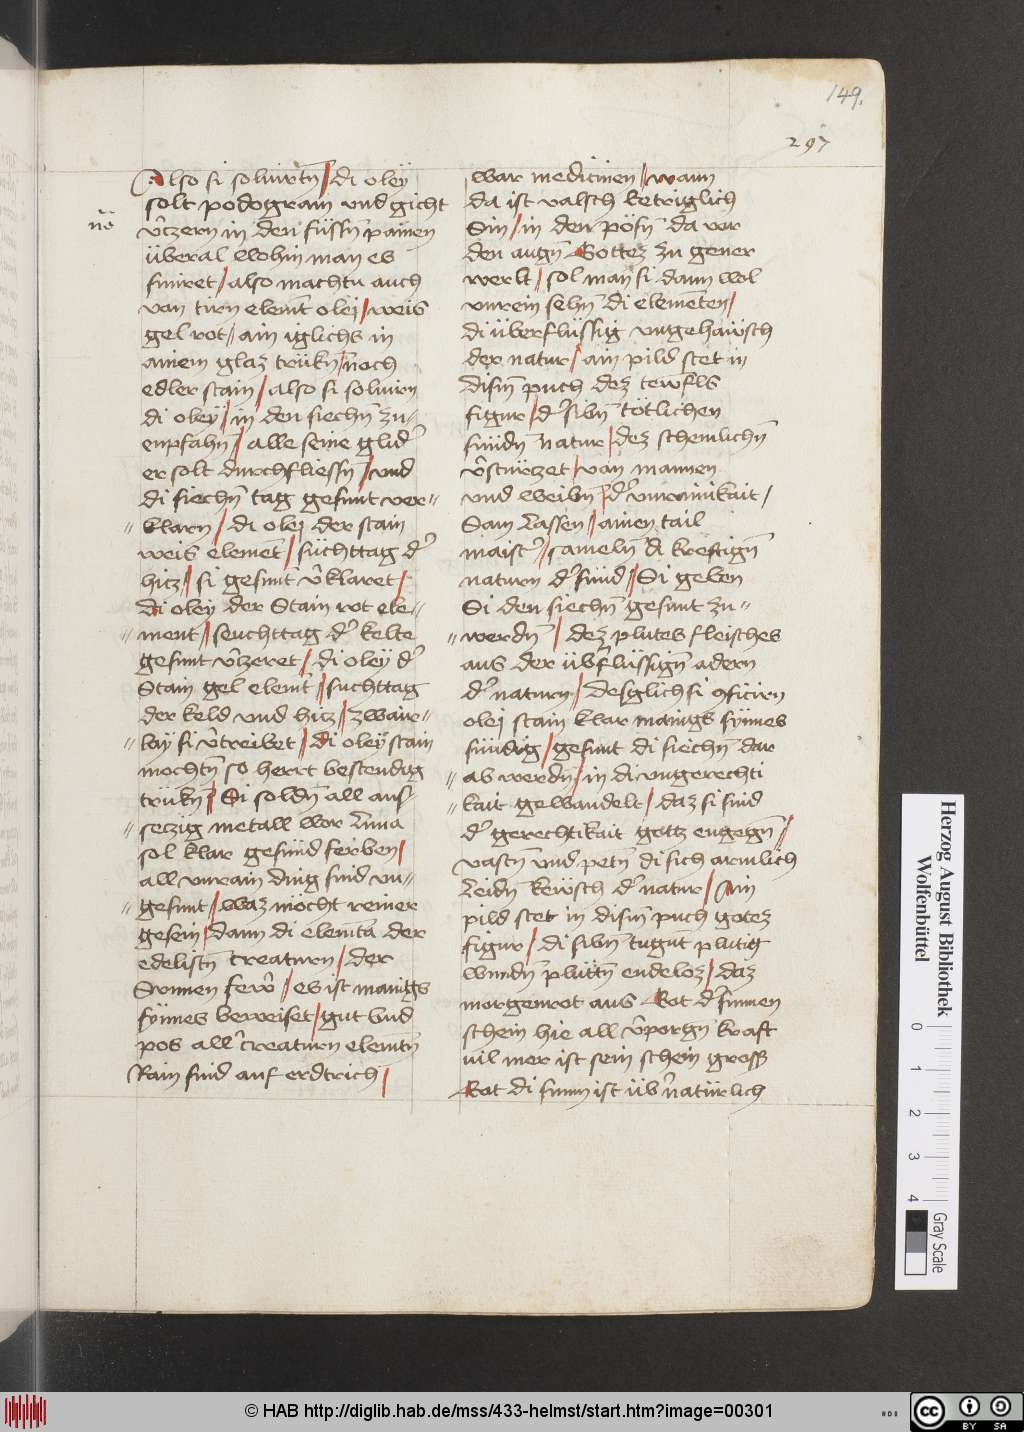 149.
297
Also si soluirtn̄ / di oleÿ
solt podogram vnd gicht
nō
v̂czern in den füssn̄ painen
überal wohin man es
smiret / also machtu auch
van tirn elemt̄ olej / weis
gel rot / ain iglichs in
ainem glaz trükn̄ / noch
edler stain / also si soluirn
di oleÿ / in den siechn̄ zu-
enpfahn̄ / alle seine glid̾
er solt durchfliessn̄ / vnd
di siechn̄ tag gesunt ver=
= klarn / di olej der stain
weis elemēt / süchttag d̾
hicz / si gesunt v̂klaret /
di oleÿ der Stain rot ele=
= ment / seuchttag d̾ kelte
gesunt v̂zeret / di oleÿ d̾
Stain gel elemt̄ / suchttag
der keld vnd hicz / zwair=
= laÿ si v̂treibet / di oleÿ stain
mochtn̄ so herrt bestendig
trükn̄ / Si soldn̄ all auf-
= seczig metall wor Luna
sol klar gesünd ferben /
all vnrain ding sind vn=
= gesunt / waz mocht reiner
gesein / dann di elemt̄a der
edelistn̄ creaturn / der
Sunnen fewr̂ / es ist manigs
sÿnnes beweiset / gut vnd
pos all̾ creaturn elemtn̄
Rain sind auf erdtrich /
war medicinen / wann
da ist valsch betriglich
Sin / in den pösn̄ da vor
den augn̄ Gottez zu gener
werlt / sol man si dann wol
vnrein sehn̄ di elemēten /
di überflüssig vngehaüsch
der natur / ain pild stet in
dism̄ puch dez tewfls
figur / d̾ sibn̄ tötlichen
sündn̄ natur / dez schemlichn̄
v̂stürzet / van mannen
vnd weibn̄ / d̾ vnrainikait /
Sam Lassen / ainen tail
maist̾ / sameln̄ di kreftign̄
naturn d̾ sünd / Si geben
Si den siechn̄ gesunt zu=
= werdn̄ / dez plutes fleisches
aus der üb̾flüssign̄ adern
d̾ naturn / desglich si ꝯficirn
olej stain klar manigs sÿnnes
sündig / gesunt di siechn̄ dar
= ab werdn̄ / in di vngerechti
= kait gewandelt / daz si sind
d̾ gerechtikait gottz engegn̄ /
vastn̄ vnd petn̄ di sich armlich
Leidn̄ keüsch d̾ natur / Ain
pild stet in dism̄ puch gotez
figur / di sibn̄ tugnt̄ plutig
wundn̄ plüttn̄ endeloz / daz
morgenrot aus Rot d̾ sunnen
schein hie all v̂porgn̄ kraft
vil mer ist sein schein gross
Rot di sunn ist üb̾natürlich
Herzog August Bibliothek
Wolfenbüttel
0 1 2 3 4
Gray Scale
© HAB http://diglib.hab.de/mss/433-helmst/start.htm?image=00301
cc BY SA